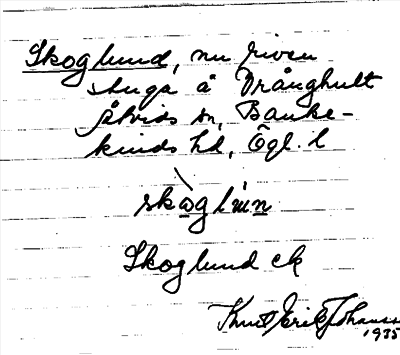 Skoglund, nu riven
stuga å Vrånghult
Åtvids sn, Banke-
kinds hd, Ögl. l
Skoglund ek
Knut Erik Johanss
1935